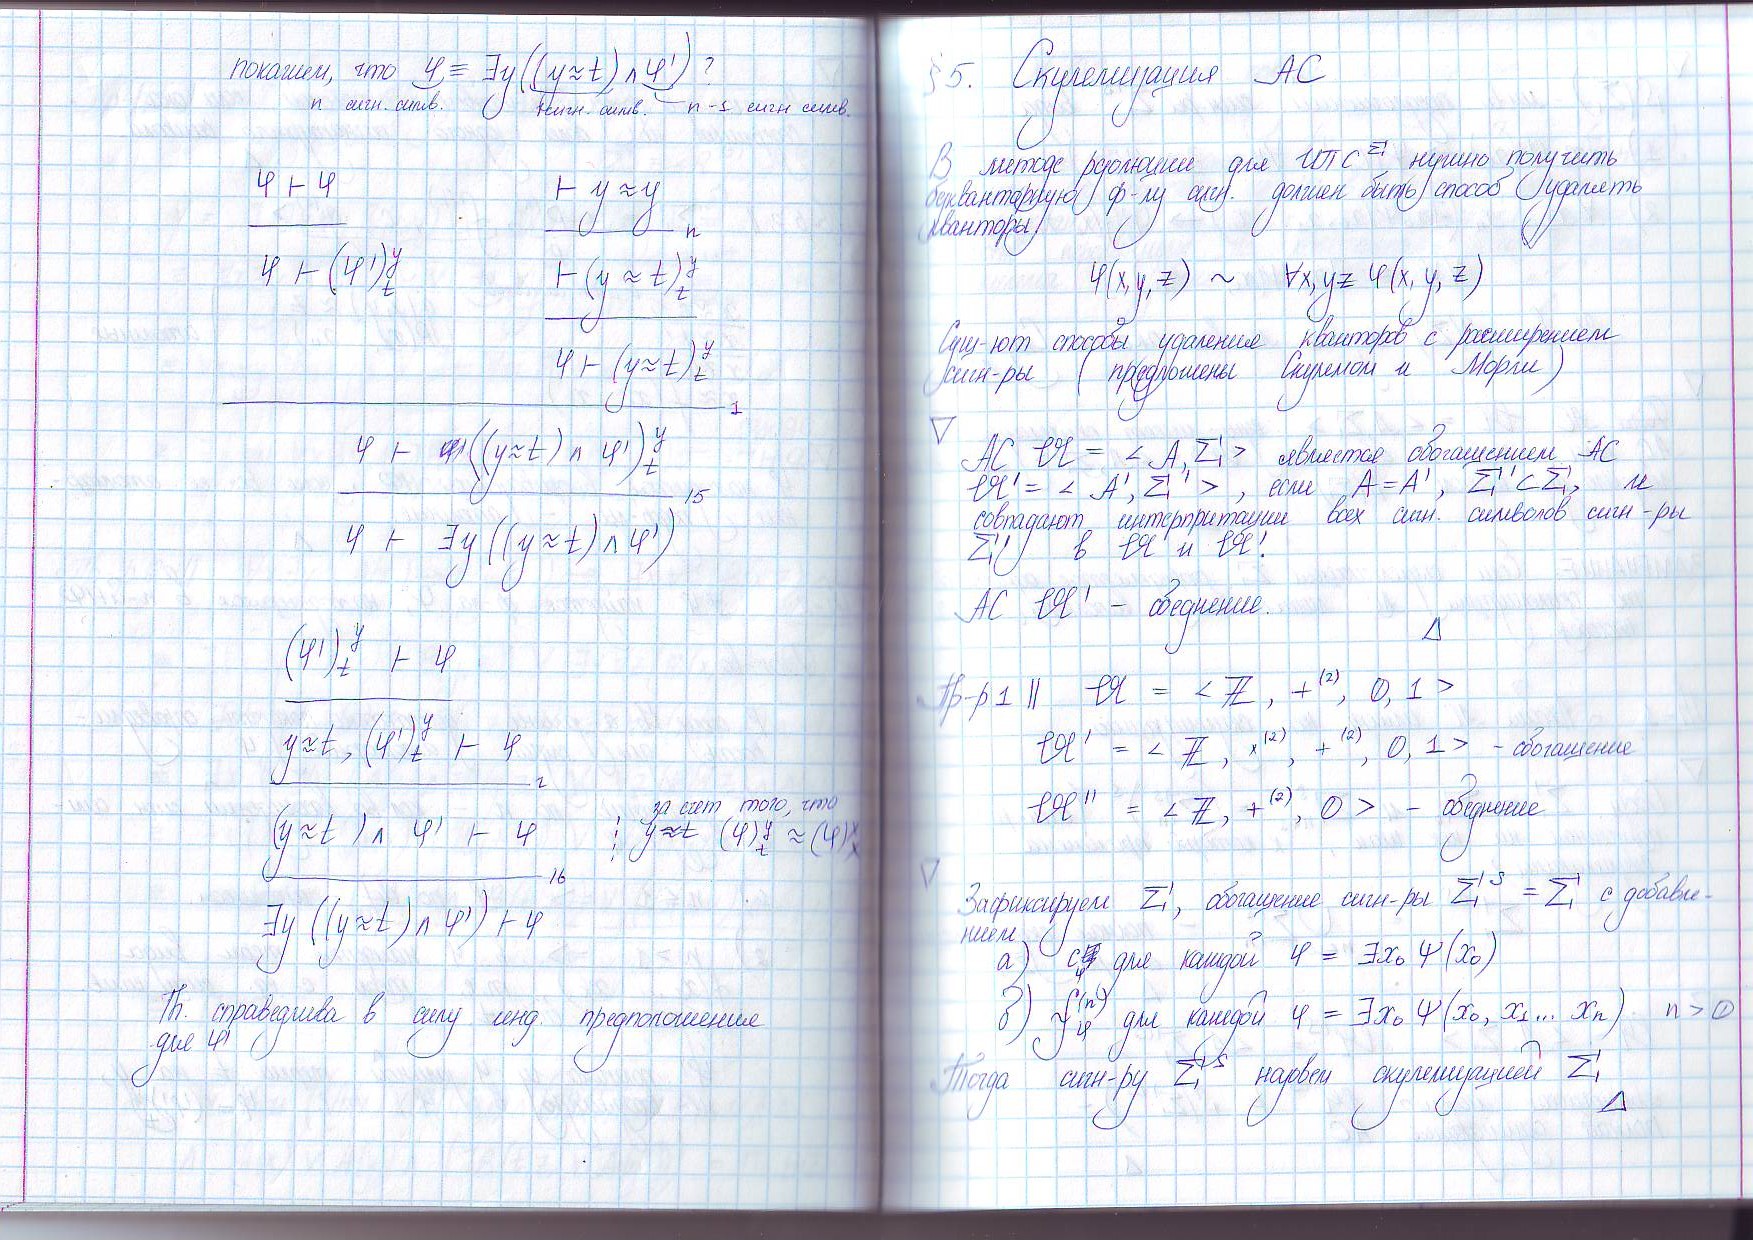 покажем, что φ ≡ ∃y((y≈t)∧φ')?
n сигн. симв. 1 сигн. симв. n-1 сигн симв.
φ ⊢ φ ⊢ y≈y
n
φ ⊢ (φ')^y_t ⊢ (y≈t)^y_t
φ ⊢ (y≈t)^y_t
1
φ ⊢ ((y≈t)∧φ')^y_t
15
φ ⊢ ∃y((y≈t)∧φ')
(φ')^y_t ⊢ φ
y≈t, (φ')^y_t ⊢ φ
за счет того, что
(y≈t)∧φ' ⊢ φ y≈t (φ)^y_t ≈(φ)
16
∃y((y≈t)∧φ') ⊢ φ
Th. справедлива в силу инд. предположения
для φ'
§5. Скулемизация АС
В методе резолюции для ИПС^Σ нужно получить
бескванторную ф-лу сигн. должен быть способ удалять
кванторы
φ(x,y,z) ~ ∀x,yz φ(x,y,z)
Сущ-ют способы удаления кванторов с расширением
сигн-ры (предложены Скулемом и Морли)
▽
АС 𝔄 = <A,Σ> является обогащением АС
𝔄' = <A',Σ'>, если A=A', Σ'⊂Σ, и
совпадают интерпритации всех сигн. символов сигн-ры
Σ' в 𝔄 и 𝔄'.
АС 𝔄' - обеднение.
△
Пр-р1 || 𝔄 = <ℤ, +⁽²⁾, 0, 1>
𝔄' = <ℤ, ×⁽²⁾, +⁽²⁾, 0, 1> - обогащение
𝔄'' = <ℤ, +⁽²⁾, 0> - обеднение
▽
Зафиксируем Σ, обогащение сигн-ры Σ^S = Σ с добавле-
нием
а) c_φ для каждой φ = ∃x₀ ψ(x₀)
б) f_φ^(n) для каждой φ = ∃x₀ ψ(x₀, x₁... xₙ) n>0
Тогда сигн-ру Σ^S назвем скулемизацией Σ
△